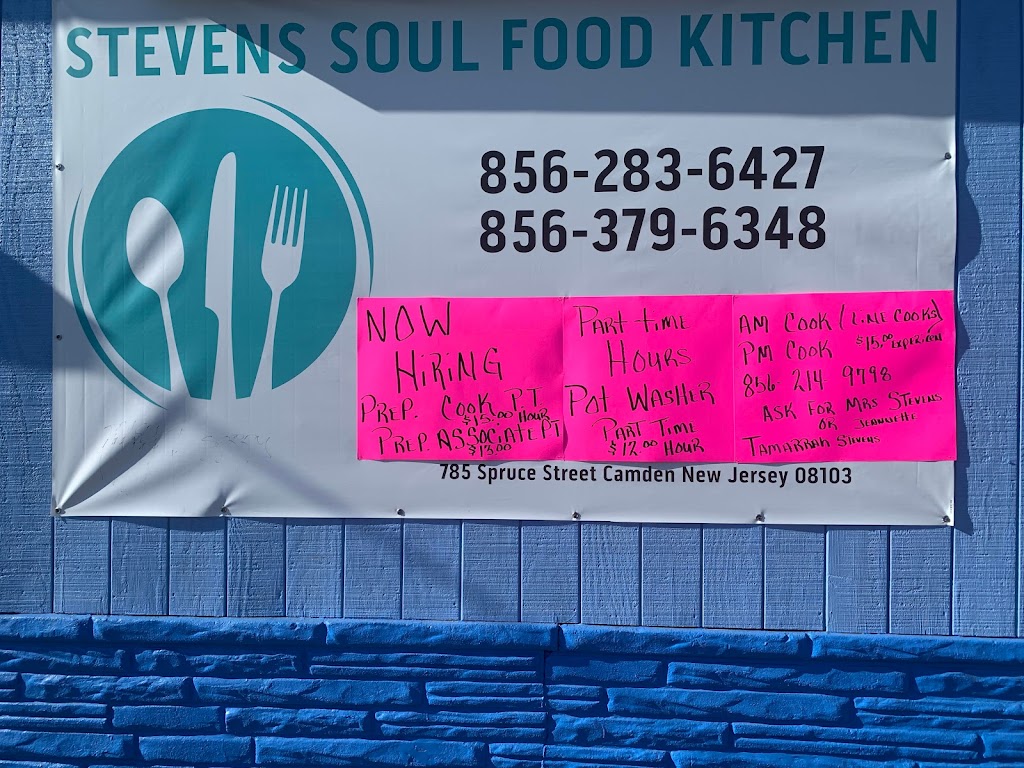 STEVENS SOUL FOOD KITCHEN
856-283-6427
856-379-6348
NOW
HIRING
PREP. COOK PT
$15.00 HOUR
PREP ASSOCIATE PT
$13.00
PART TIME
HOURS
POT WASHER
PART TIME
$12.00 HOUR
AM COOK (LINE COOKS)
PM COOK $15.00
856 214 9798
ASK FOR MRS STEVENS
OR JEANNETTE
TAMARRAH STEVENS
785 Spruce Street Camden New Jersey 08103